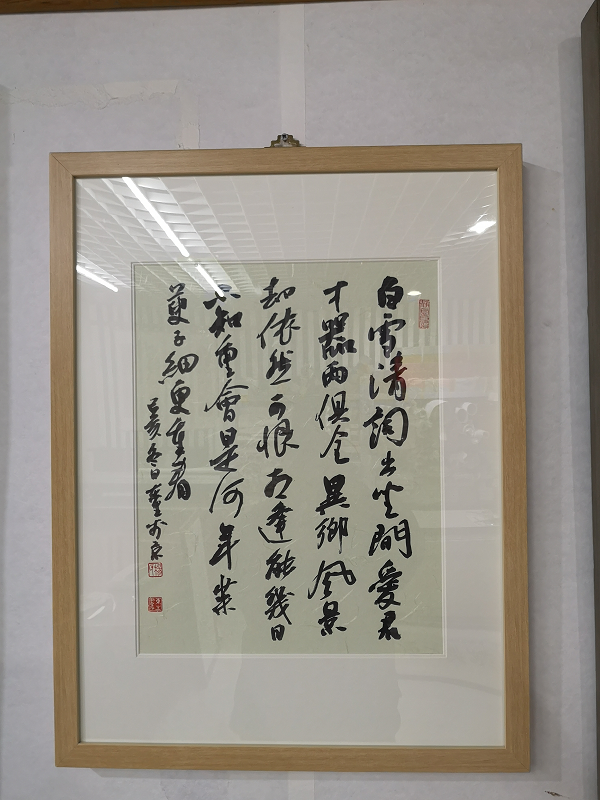 白雪清詞出坐間愛君
才器兩俱全異鄉風景
却依然可恨相逢能幾日
不知重會是何年茱
萸子細更重看
己亥冬日於京